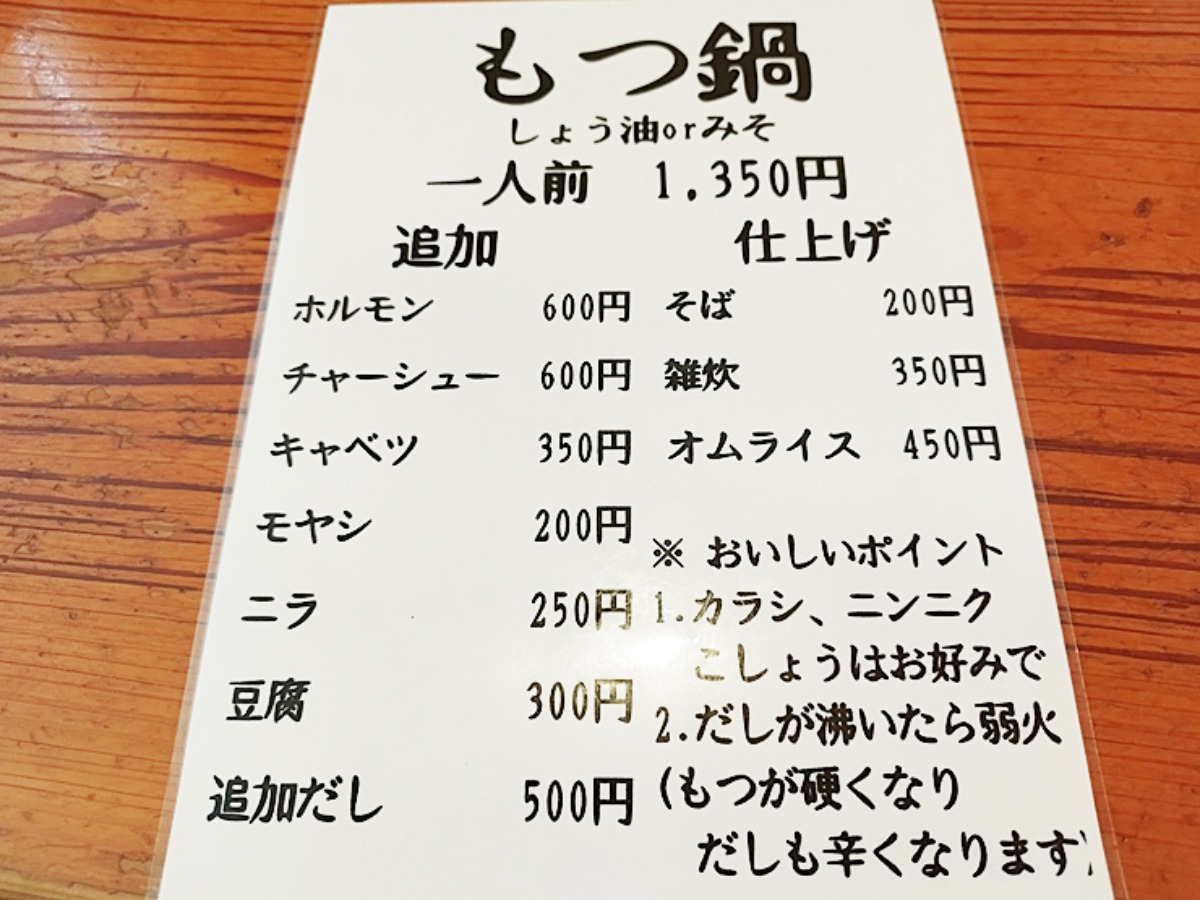 もつ鍋
しょう油orみそ
一人前 1,350円
追加
ホルモン 600円
チャーシュー 600円
キャベツ 350円
モヤシ 200円
ニラ 250円
豆腐 300円
追加だし 500円
仕上げ
そば 200円
雑炊 350円
オムライス 450円
※ おいしいポイント
1.カラシ、ニンニク
こしょうはお好みで
2.だしが沸いたら弱火
(もつが硬くなり
だしも辛くなります)